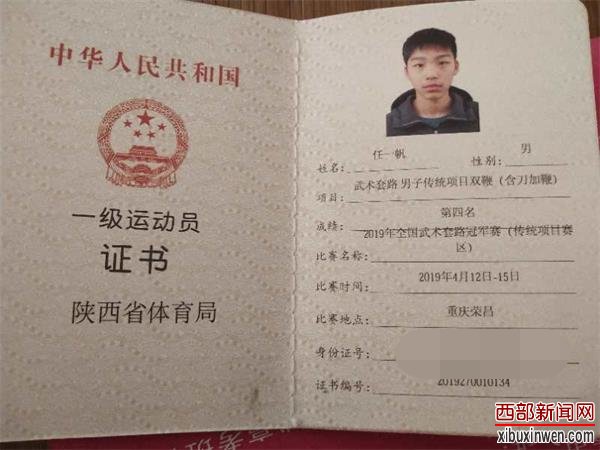 中华人民共和国
一级运动员
证书
陕西省体育局
姓名：
任一帆
性别：
男
项目：
武术套路 男子传统项目双鞭（含刀加鞭）
成绩：
第四名
比赛名称：
2019年全国武术套路冠军赛（传统项目赛
区）
比赛时间：
2019年4月12日-15日
比赛地点：
重庆荣昌
身份证号：
证书编号：
2019270010134
西部新闻网
xibuxinwen.com